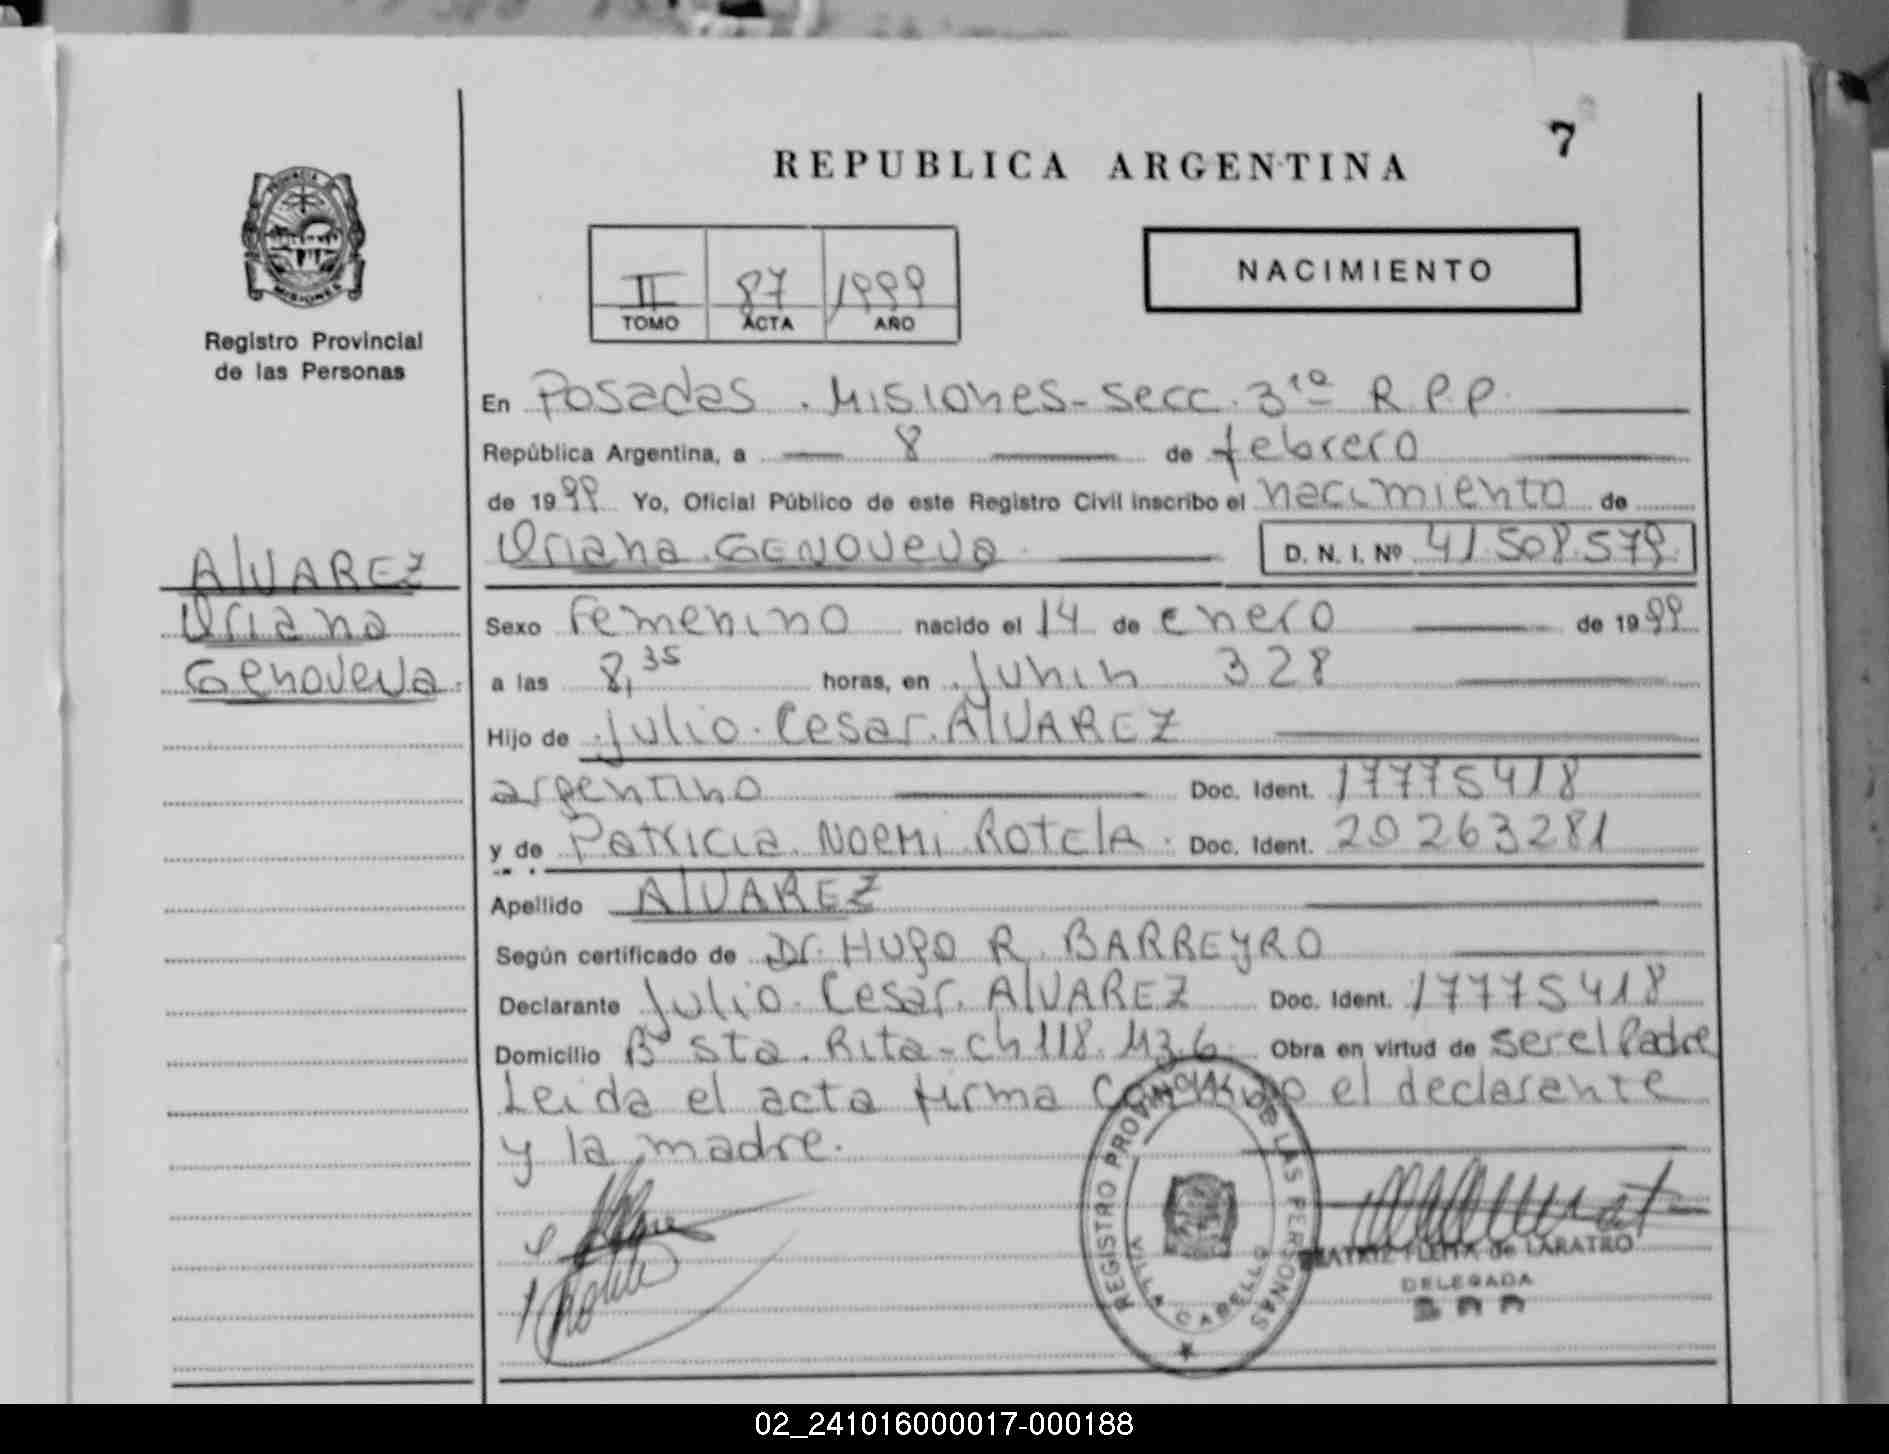 7
REPUBLICA ARGENTINA
PROVINCIA DE
MISIONES
Registro Provincial
de las Personas
II 87 1999
TOMO ACTA AÑO
NACIMIENTO
En Posadas. Misiones-secc. 3ra R.P.P.
República Argentina, a 8 de febrero
de 1999 Yo, Oficial Público de este Registro Civil inscribo el nacimiento de
Oriana GENOVEVA D. N. I. Nº 41508.579
ALVAREZ
Oriana
Genoveva.
Sexo Femenino nacido el 14 de enero de 1999
a las 8,35 horas, en Junin 328
Hijo de Julio Cesar ALVAREZ
argentino Doc. Ident. 17775418
y de Patricia NOEMI Rotela. Doc. Ident. 20263281
Apellido ALVAREZ
Según certificado de Dr. HUgO R. BARREYRO
Declarante Julio Cesar ALVAREZ Doc. Ident. 17775418
Domicilio Bº Sta. Rita-ch 118. Mz 6 Obra en virtud de ser el Padre
Leida el acta firma conmigo el declarante
y la madre.
REGISTRO PROVINCIAL DE LAS PERSONAS
VILLA CABELLO
BEATRIZ FLEITA de LARATRO
DELEGADA
02_241016000017-000188